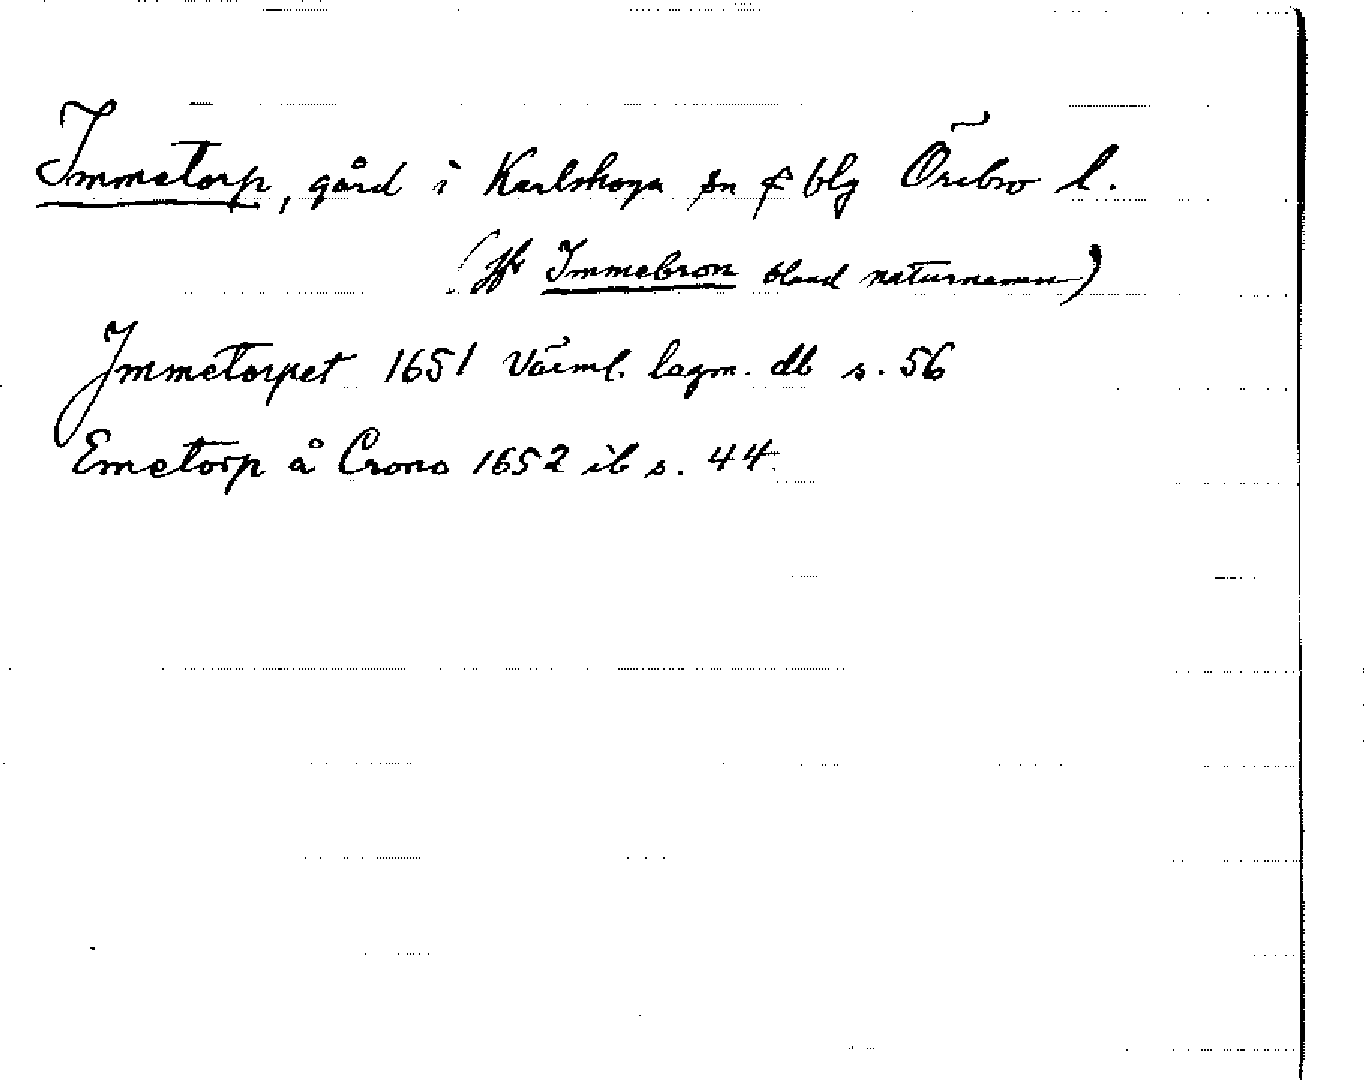 Immetorp, gård i Karlskoga sn o blg Örebro l.
(jfr Immebron bland naturnamn)
Jmmetorpet 1651 Värml. lagm. db s. 56
Emetorp å Crono 1652 ib s. 44